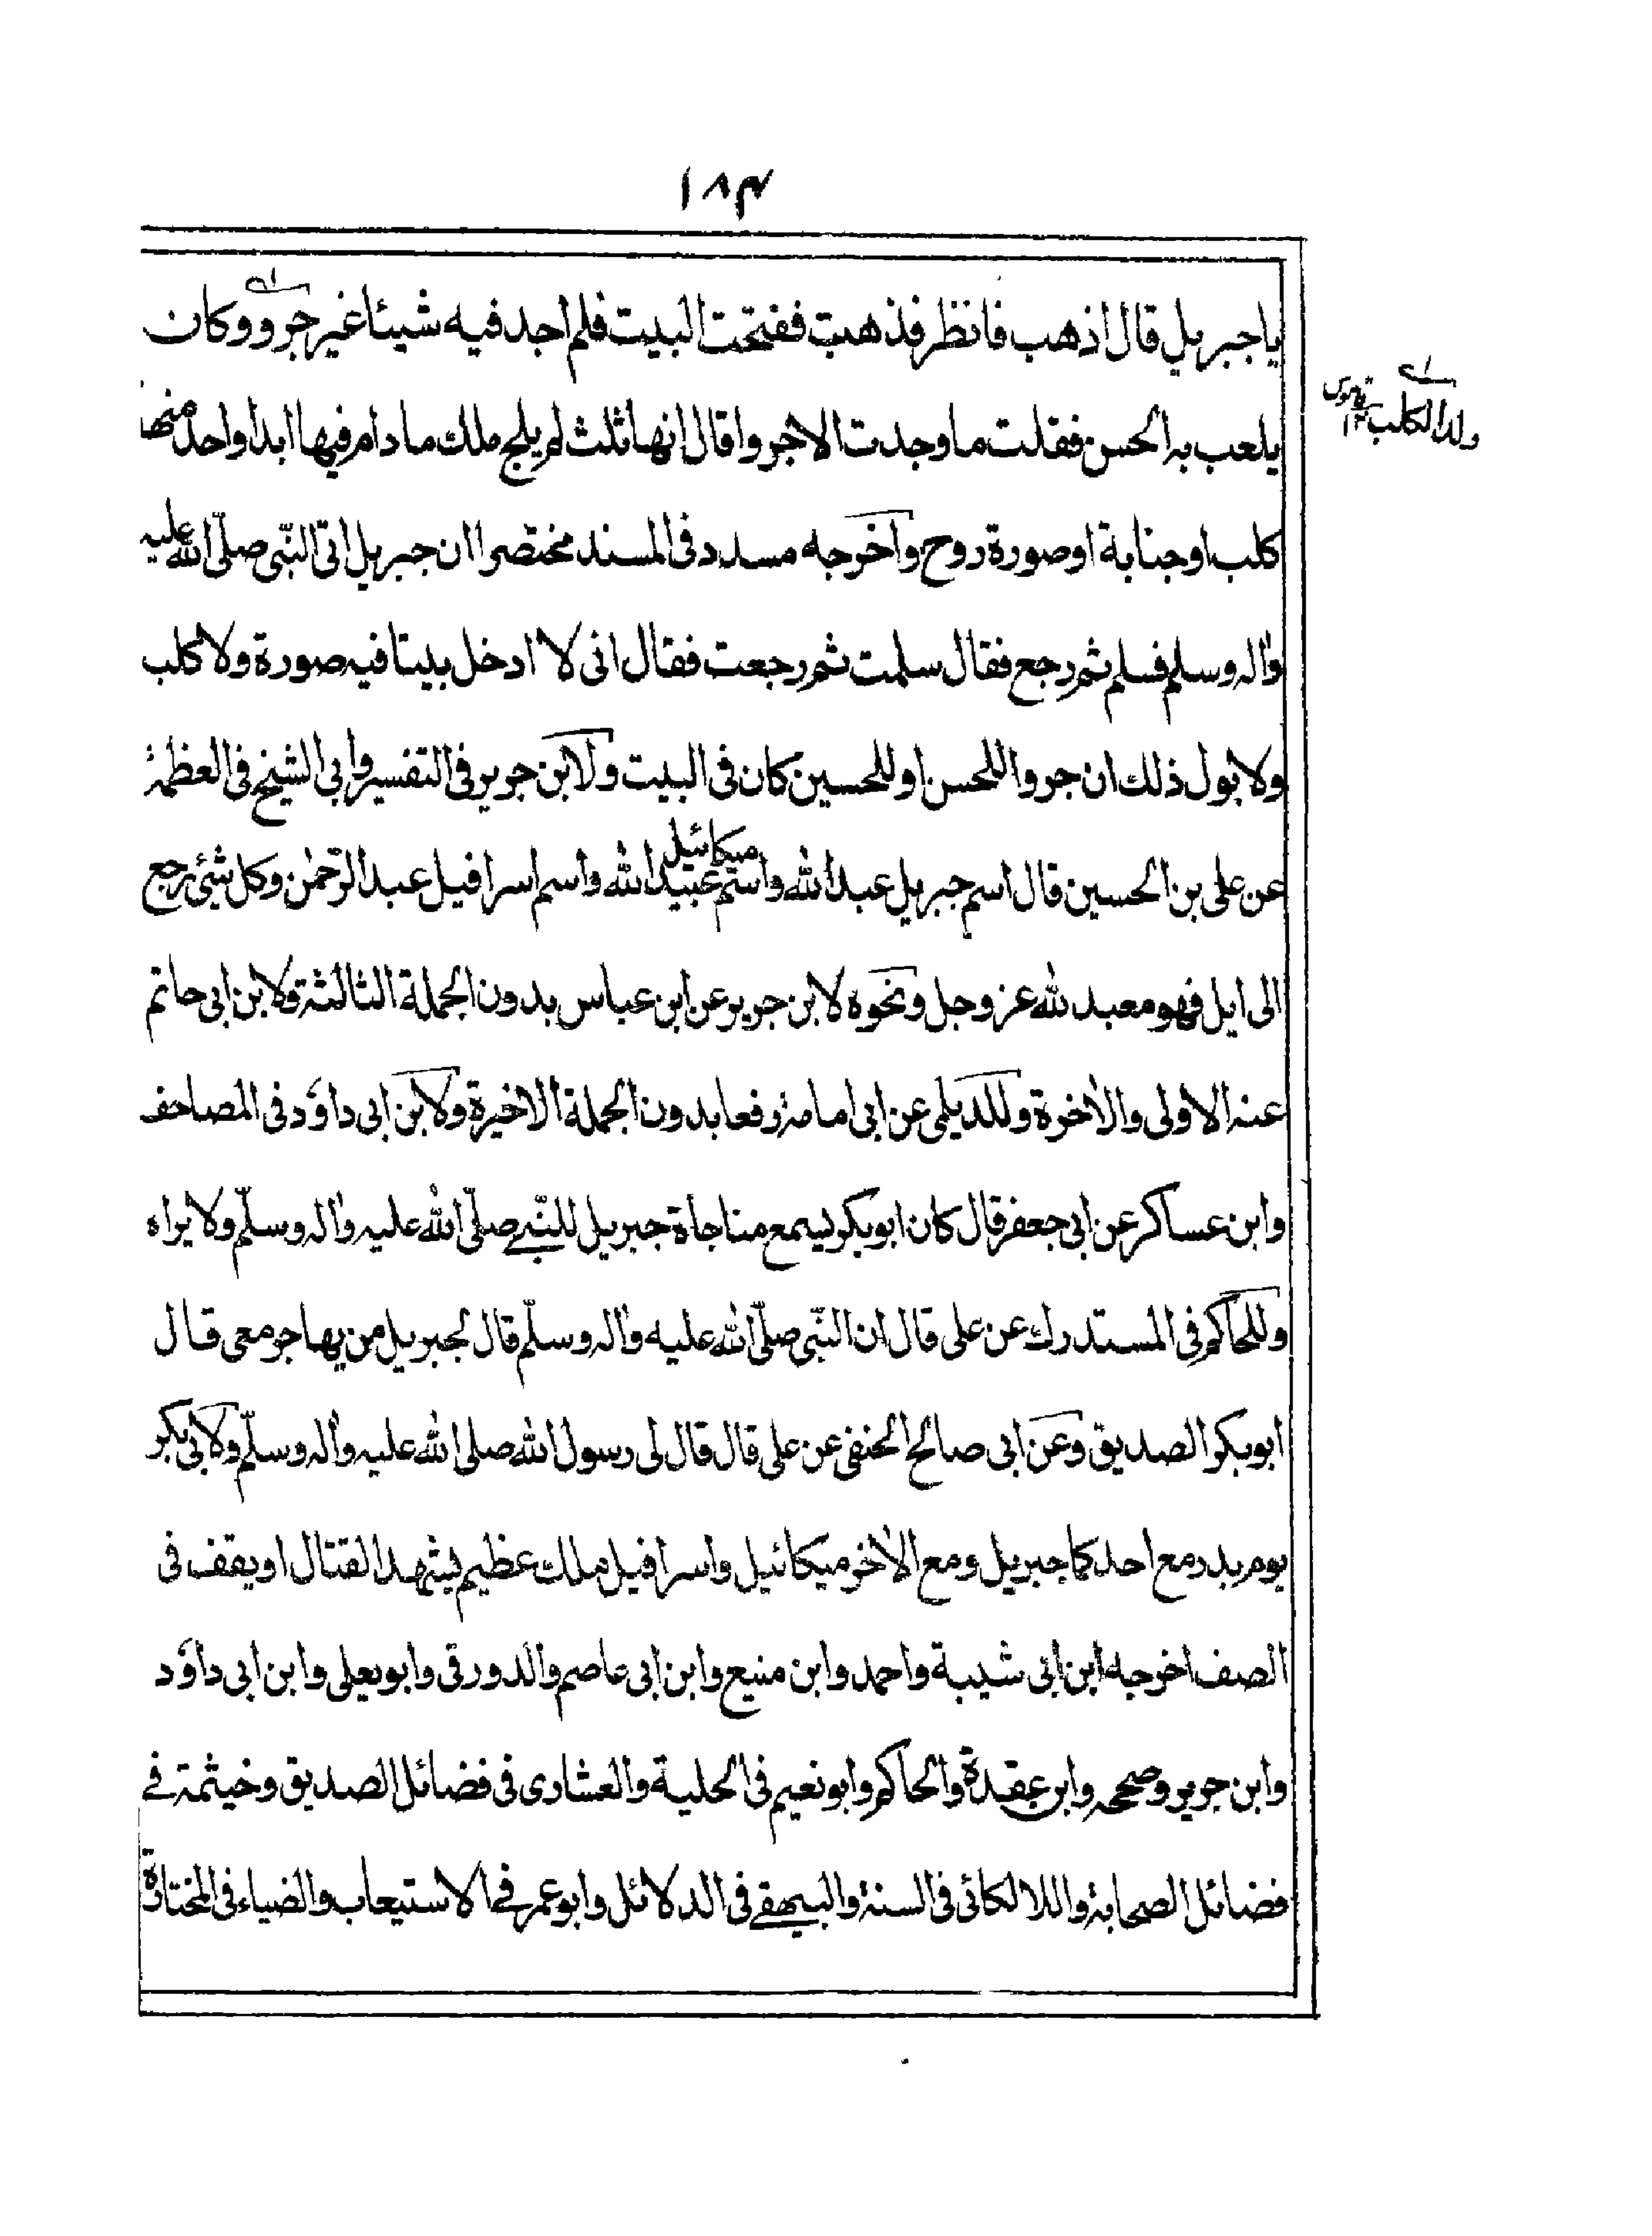 ١٨٣
ياجبريل قال اذهب فانظر فذهبت ففتحت البيت فلم اجد فيه شيئا غير جرو وكان
يلعب به الحسن فقلت ما وجدت الا جروا قال انها ثلث لم يلج ملك ما دام فيها ابدا واحد منها
كلب او جنابة او صورة روح واخرجه مسدد فى المسند مختصرا ان جبريل اتى النبى صلى الله عليه
واله وسلم فسلم ثم رجع فقال سلمت ثم رجعت فقال انى لا ادخل بيتا فيه صورة ولا كلب
ولا بول ذلك ان جروا للحسن او للحسين كان فى البيت ولابن جرير فى التفسير وابى الشيخ فى العظمة
عن على بن الحسين قال اسم جبريل عبد الله واسم ميكائيل عبيد الله واسم اسرافيل عبد الرحمٰن وكل شئ رجع
الى ايل فهو معبد لله عز وجل ونحوه لابن جرير عن ابن عباس بدون الجملة الثالثة ولابن ابى حاتم
عنه الاولى والاخرة وللديلمى عن ابى امامة رفعا بدون الجملة الاخيرة ولابن ابى داؤد فى المصاحف
وابن عساكر عن ابى جعفر قال كان ابوبكر يسمع مناجاة جبريل للنبى صلى الله عليه واله وسلم ولا يراه
وللحاكم فى المستدرك عن على قال ان النبى صلى الله عليه واله وسلم قال لجبريل من يهاجر معى قال
ابوبكر الصديق وعن ابى صالح الحنفى عن على قال قال لى رسول الله صلى الله عليه واله وسلم ولابى بكر
يوم بدر مع احدكما جبريل ومع الاخر ميكائيل واسرافيل ملك عظيم يشهد القتال او يقف فى
الصف اخرجه ابن ابى شيبة واحمد وابن منيع وابن ابى عاصم والدورقى وابويعلى وابن ابى داؤد
وابن جرير وصححه وابن عقدة والحاكم وابونعيم فى الحلية والعشارى فى فضائل الصديق وخيثمة فى
فضائل الصحابة واللالكائى فى السنة والبيهقى فى الدلائل وابوعمر فى الاستيعاب والضياء فى المختارة
اى ولد الكلب قاموس ١٢